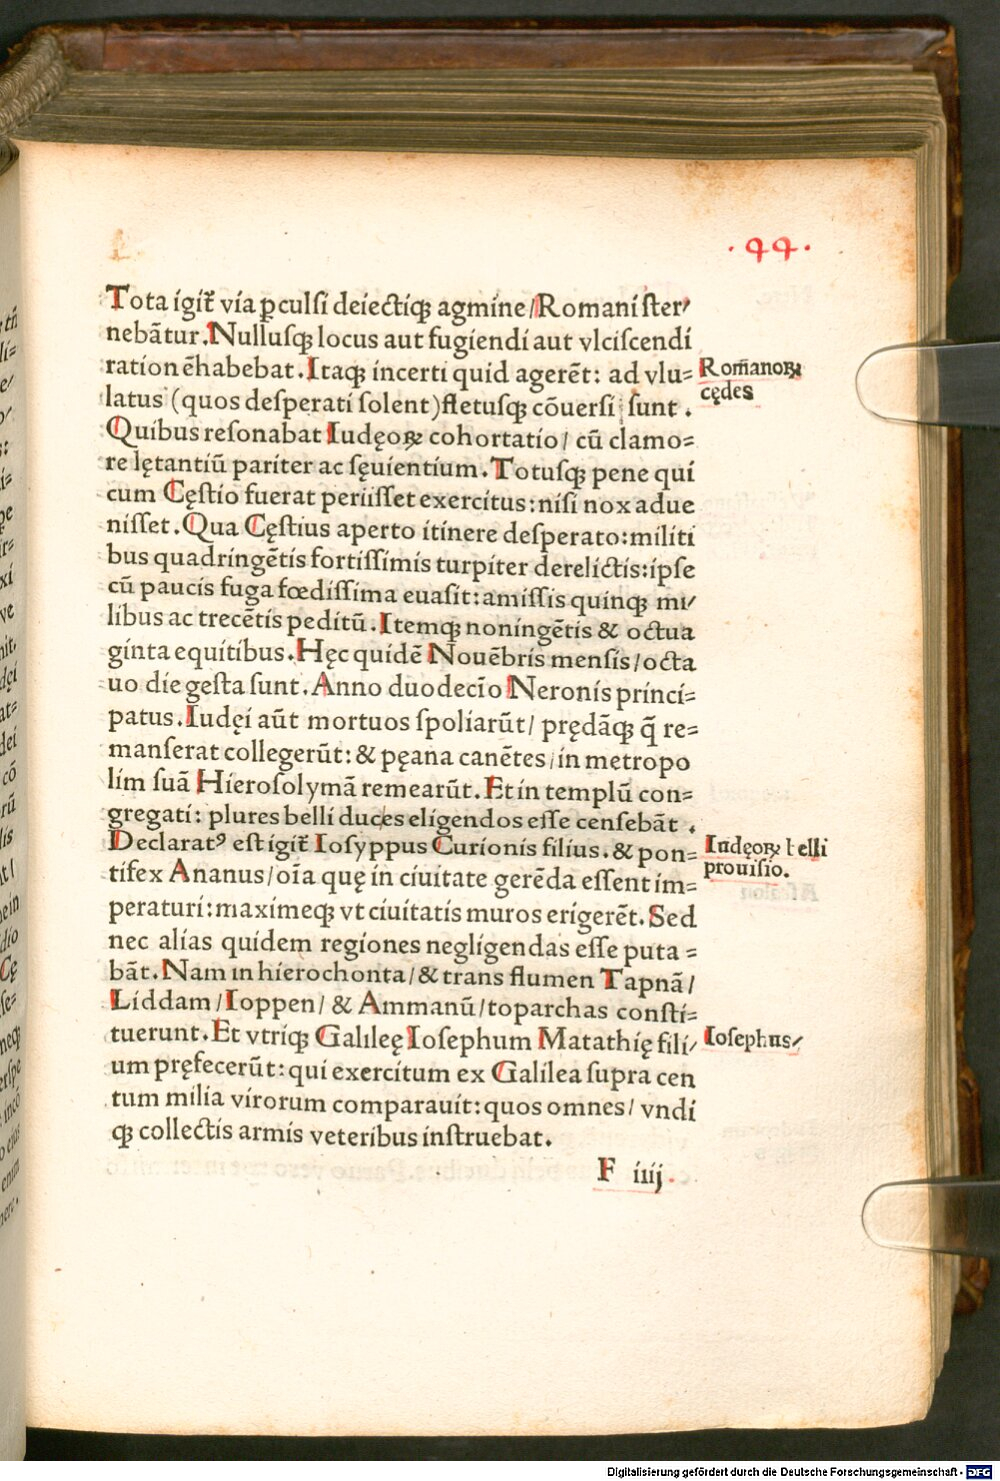 .44.
Tota igit̃ via ꝑculsi deiectiqꝫ agmine/Romani ster/
nebãtur.Nullusqꝫ locus aut fugiendi aut vlciscendi
ration ẽhabebat.Itaqꝫ incerti quid agerẽt: ad vlu=
Rom̃anoꝝ
cędes
latus (quos desperati solent)fletusqꝫ cõuersi sunt.
Quibus resonabat Iudęoꝝ cohortatio/ cũ clamo=
re lętantiũ pariter ac sęuientium.Totusqꝫ pene qui
cum Cęstio fuerat periisset exercitus:nisi nox adue
nisset.Qua Cęstius aperto itinere desperato:militi
bus quadringẽtis fortissimis turpiter derelictis:ipse
cũ paucis fuga fœdissima euasit:amissis quinqꝫ mi/
libus ac trecẽtis peditũ.Itemqꝫ noningẽtis & octua
ginta equitibus.Hęc quidẽ Nouẽbris mensis/octa
uo die gesta sunt.Anno duodecĩo Neronis princi=
patus.Iudęi aũt mortuos spoliarũt/ prędãqꝫ q̃ re=
manserat collegerũt:& pęana canẽtes/in metropo
lim suã Hierosolymã remearũt.Et in templũ con=
gregati: plures belli duces eligendos esse censebãt.
Declaratꝰ est igit̃ Iosyppus Curionis filius.& pon=
Iudęoꝝ belli
prouisio.
tifex Ananus/oĩa quę in ciuitate gerẽda essent im=
peraturi:maximeqꝫ vt ciuitatis muros erigerẽt.Sed
nec alias quidem regiones negligendas esse puta=
bãt.Nam in hierochonta/& trans flumen Tapnã/
Liddam/Ioppen/ & Ammanũ/toparchas consti=
tuerunt.Et vtriqꝫ Galilęę Iosephum Matathię fili/
Iosephus/
um pręfecerũt:qui exercitum ex Galilea supra cen
tum milia virorum comparauit:quos omnes/ vndi
qꝫ collectis armis veteribus instruebat.
F iiij.
Digitalisierung gefördert durch die Deutsche Forschungsgemeinschaft - DFG